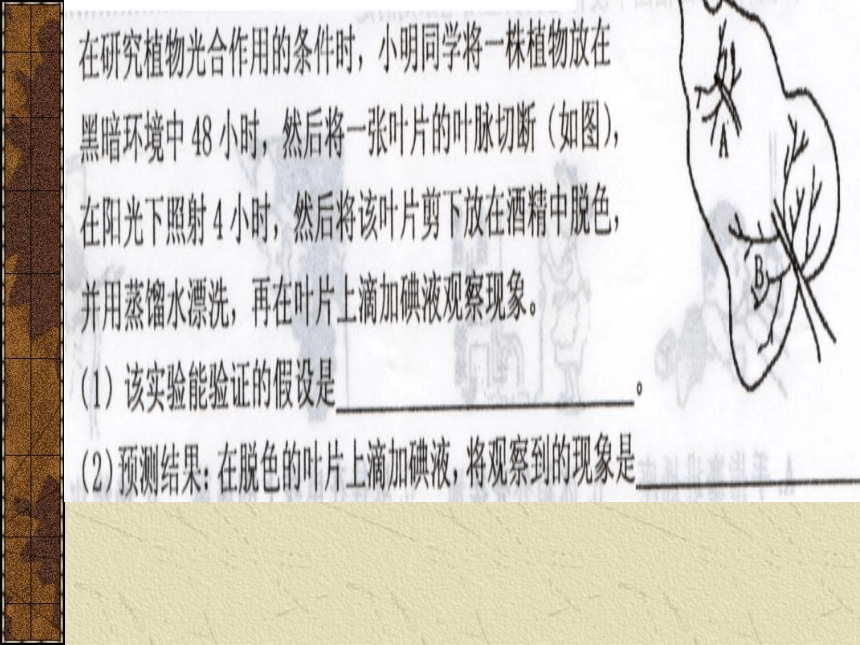 在研究植物光合作用的条件时，小明同学将一株植物放在
黑暗环境中 48 小时，然后将一张叶片的叶脉切断（如图），
在阳光下照射 4 小时，然后将该叶片剪下放在酒精中脱色，
并用蒸馏水漂洗，再在叶片上滴加碘液观察现象。
(1) 该实验能验证的假设是____________。
(2) 预测结果：在脱色的叶片上滴加碘液，将观察到的现象是____________
A
B